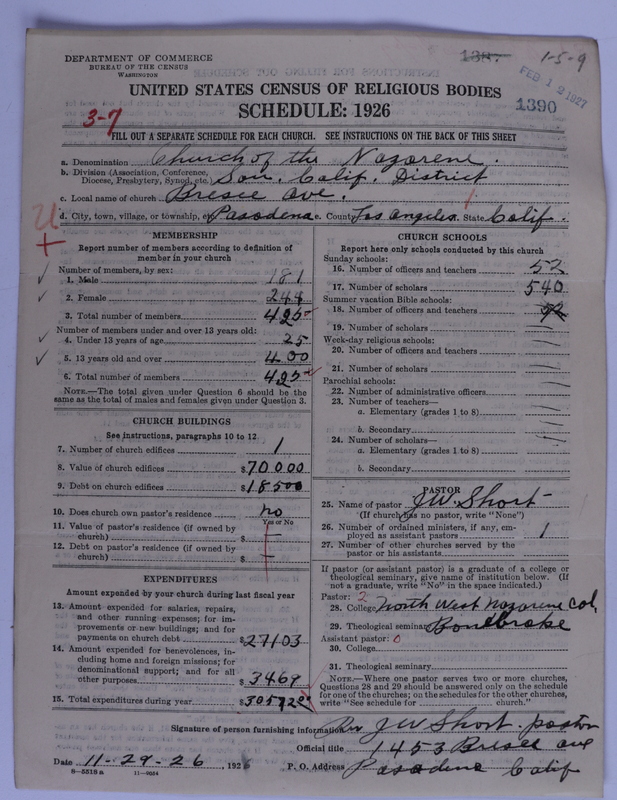 DEPARTMENT OF COMMERCE
BUREAU OF THE CENSUS
WASHINGTON
1387
1-5-9
FEB 12 1927
1390
UNITED STATES CENSUS OF RELIGIOUS BODIES
SCHEDULE: 1926
3-7
FILL OUT A SEPARATE SCHEDULE FOR EACH CHURCH. SEE INSTRUCTIONS ON THE BACK OF THIS SHEET
a. Denomination Church of the Nazarene.
b. Division (Association, Conference,
Diocese, Presbytery, Synod, etc. Sou. Calif. District
c. Local name of church Bresee Ave.
d. City, town, village, or township, Pasadena e. County Los Angeles. State Calif.
MEMBERSHIP
Report number of members according to definition of
member in your church
Number of members, by sex:
1. Male 181
2. Female 244
3. Total number of members 425
Number of members under and over 13 years old:
4. Under 13 years of age 25
5. 13 years old and over 400
6. Total number of members 425
NOTE.—The total given under Question 6 should be the
same as the total of males and females given under Question 3.
CHURCH BUILDINGS
See instructions, paragraphs 10 to 12.
7. Number of church edifices 1
8. Value of church edifices $70000
9. Debt on church edifices $18500
10. Does church own pastor's residence no
Yes or No
11. Value of pastor's residence (if owned by
church) $ —
12. Debt on pastor's residence (if owned by
church) $ —
EXPENDITURES
Amount expended by your church during last fiscal year
13. Amount expended for salaries, repairs,
and other running expenses; for im-
provements or new buildings; and for
payments on church debt $27103
14. Amount expended for benevolences, in-
cluding home and foreign missions; for
denominational support; and for all
other purposes $3469
15. Total expenditures during year $30572
CHURCH SCHOOLS
Report here only schools conducted by this church
Sunday schools:
16. Number of officers and teachers 52
17. Number of scholars 540
Summer vacation Bible schools:
18. Number of officers and teachers 52
19. Number of scholars
Week-day religious schools:
20. Number of officers and teachers
21. Number of scholars
Parochial schools:
22. Number of administrative officers
23. Number of teachers—
a. Elementary (grades 1 to 8)
b. Secondary
24. Number of scholars—
a. Elementary (grades 1 to 8)
b. Secondary
PASTOR
25. Name of pastor J W. Short
(If church has no pastor, write "None")
26. Number of ordained ministers, if any, em-
ployed as assistant pastors 1
27. Number of other churches served by the
pastor or his assistants
If pastor (or assistant pastor) is a graduate of a college or
theological seminary, give name of institution below. (If
not a graduate, write "No" in the space indicated.)
Pastor: 2
28. College North West Nazarene Col.
29. Theological seminary Bonebrake
Assistant pastor: 0
30. College
31. Theological seminary
NOTE.—Where one pastor serves two or more churches,
Questions 28 and 29 should be answered only on the schedule
for one of the churches; on the schedules for the other churches,
write "See schedule for church."
Signature of person furnishing information Rev J W Short pastor
Official title 1453 Bresee ave
Date 11-29-26, 192 P. O. Address Pasadena Calif
8-5518 a 11-9054